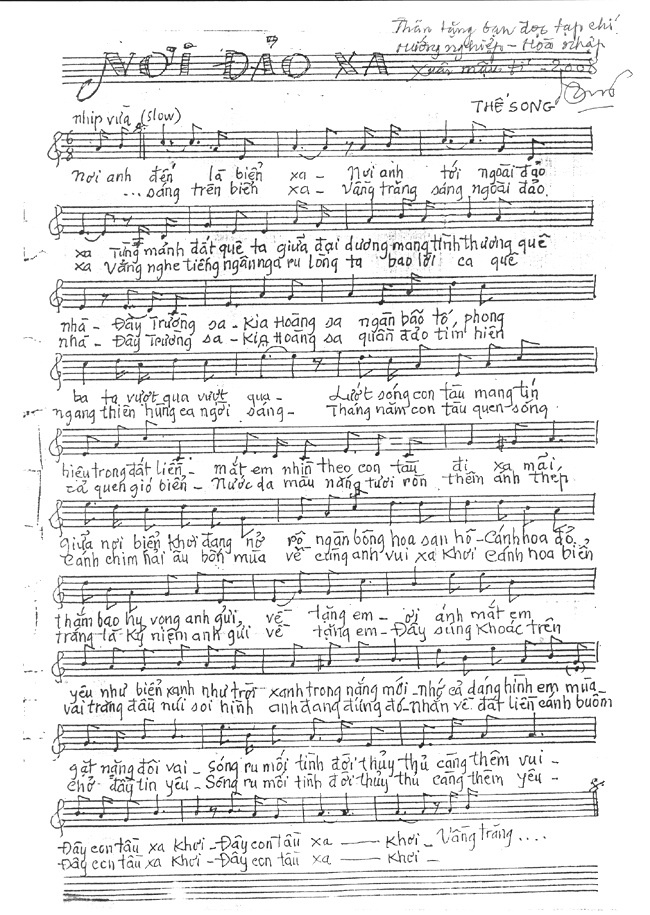 Thân tặng bạn đọc tạp chí
Hướng nghiệp - Hòa nhập
Xuân mậu tí - 2008
NƠI ĐẢO XA
THẾ SONG
nhịp vừa (slow)
6
8
Nơi anh đến là biển xa - Nơi anh tới ngoài đảo
...sáng trên biển xa - Vầng trăng sáng ngoài đảo
xa Từng mảnh đất quê ta giữa đại dương mang tình thương quê
xa Vẳng nghe tiếng ngân nga ru lòng ta bao lời ca quê
nhà - Đây Trường sa - Kia Hoàng sa ngàn bão tố, phong
nhà - Đây Trường sa - Kia Hoàng sa quần đảo tím hiên
ba ta vượt qua vượt qua - Lướt sóng con tàu mang tín
ngang thiên hùng ca ngời sáng - Tháng năm con tàu quen sóng
hiệu trong đất liền - mắt em nhìn theo con tàu đi xa mãi,
cả quen gió biển - Nước da màu nắng tươi ròn thêm ánh thép
Giữa nơi biển khơi đang nở rộ ngàn bông hoa san hô - Cánh hoa đỏ
Cánh chim hải âu bốn mùa về cùng anh vui xa khơi cánh hoa biển
thắm bao hy vọng anh gửi về tặng em - ơi ánh mắt em
trắng là kỷ niệm anh gửi về tặng em - Đây súng khoác trên
yêu như biển xanh như trời xanh trong nắng mới - nhớ cả dáng hình em mùa -
vai trăng đầu núi soi hình anh đang đứng đó - nhắn về đất liền cánh buồm
gặt nặng đôi vai - Sóng ru mối tình đời thủy thủ càng thêm vui -
chở đầy tin yêu - Sóng ru mối tình đời thủy thủ càng thêm yêu -
Đây con tàu xa khơi - Đây con tàu xa — khơi - Vầng trăng ....
Đây con tàu xa khơi - Đây con tàu xa — khơi -